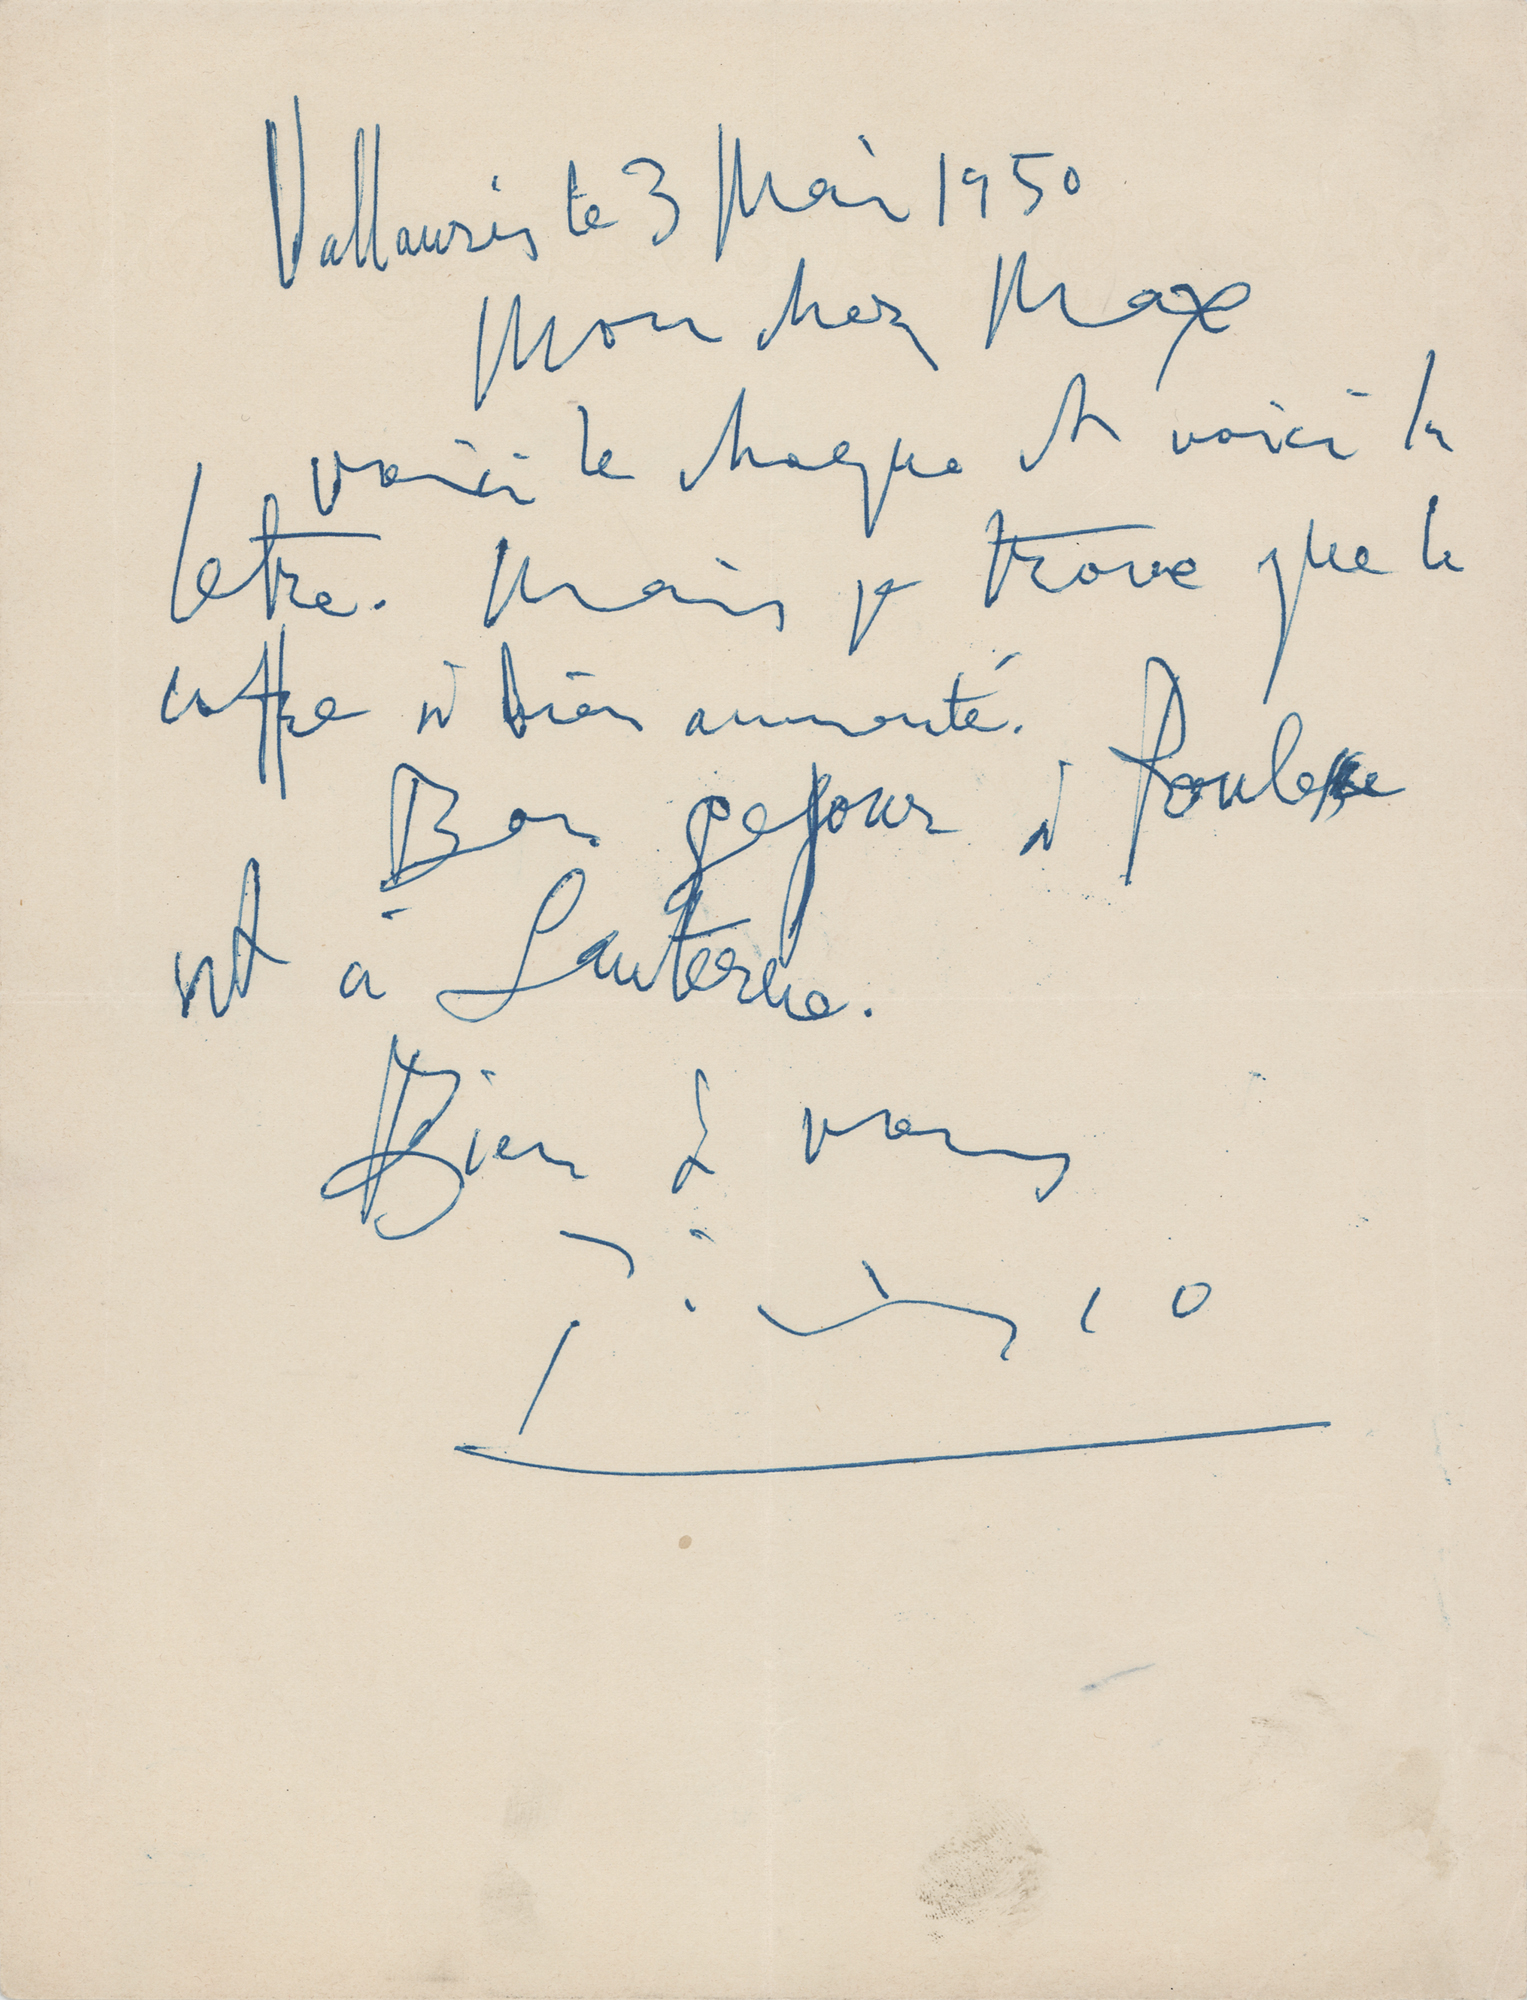 Vallauris le 3 Mai 1950
Mon cher Max
voici le cheque et voici la
letre. Mais je trouve que le
coffre à bien aumonté.
Bon sejour à
et à Lanterne.
Bien à vous
Picasso